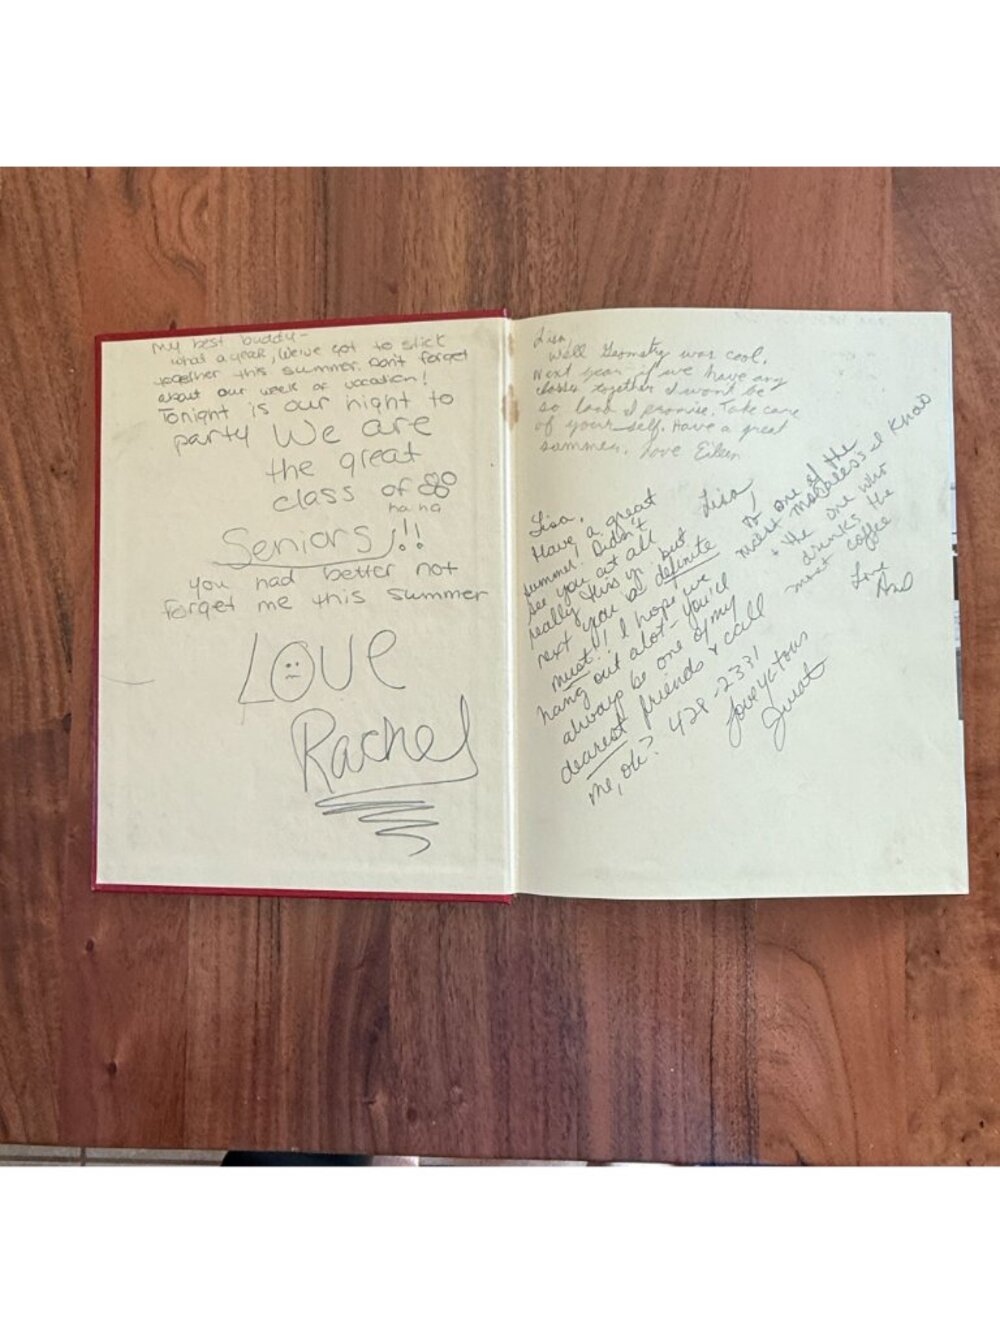 My best buddy-
what a year, We've got to stick
together this summer. Don't forget
about our week of vacation!
Tonight is our night to
party We are
the great
class of 88
ha ha
Seniors!!
you had better not
forget me this summer
LOVE
Rachel
Lisa,
Well Geometry was cool.
Next year if we have any
classes together I wont be
so I promise. Take care
of yourself. Have a great
summer. Love Eileen
Lisa,
Have a great
summer! Didn't
see you at all
really this yr. but
next you be definite
must!! I hope we
hang out alot - you'll
always be one of my
dearest friends & call
me, ok? 428-2331
Love ya tons
Lisa,
To one of the
most I know
& the one who
drinks the
most coffee
Love